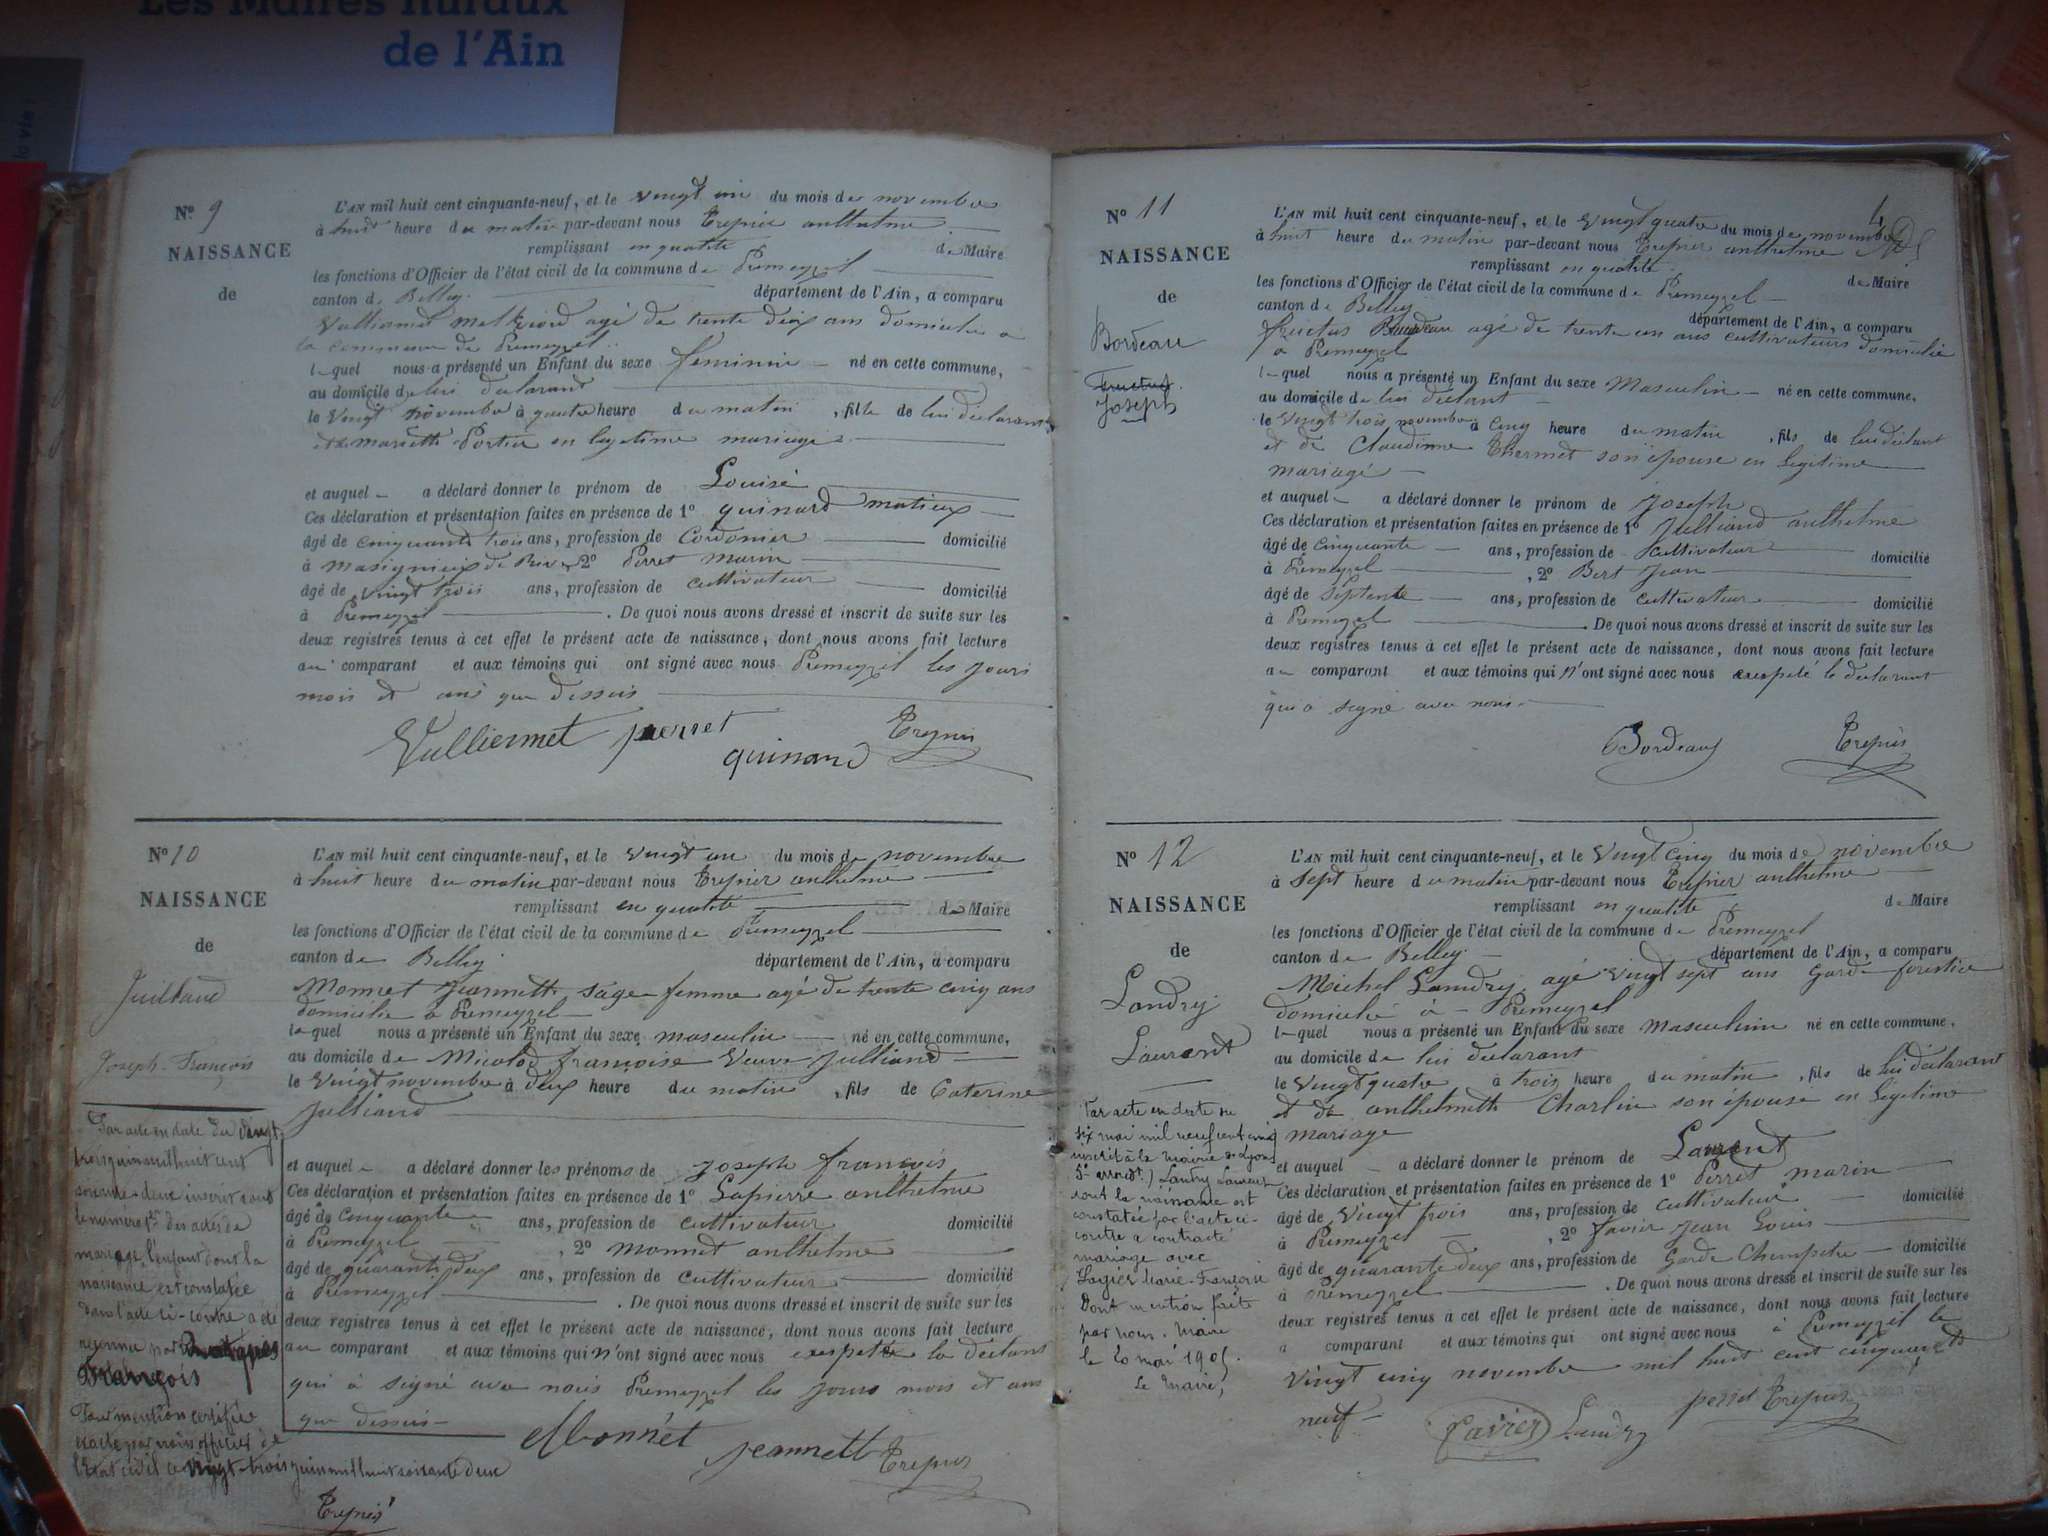 Les Maires ruraux
de l'Ain
la vie !
N° 9
NAISSANCE
de
L'AN mil huit cent cinquante-neuf, et le vingt un du mois de novembre
à huit heure du matin par-devant nous Trepier anthelme
remplissant en qualité de Maire
les fonctions d'Officier de l'état civil de la commune de Premeyzel
canton de Belley département de l'Ain, a comparu
agé de trente ans domicilié a
la commune de Premeyzel
lequel nous a présenté un Enfant du sexe feminin né en cette commune,
au domicile de lui declarant
le vingt novembre à quatre heure du matin, fille de lui declarant
et de mariette Portier en legetime mariage
et auquel a déclaré donner le prénom de Louise
Ces déclaration et présentation faites en présence de 1° guinard
âgé de cinquante trois ans, profession de Cordonier domicilié
à de Rive, 2° Perret marin
âgé de vingt trois ans, profession de cultivateur domicilié
à Premeyzel. De quoi nous avons dressé et inscrit de suite sur les
deux registres tenus à cet effet le présent acte de naissance, dont nous avons fait lecture
au comparant et aux témoins qui ont signé avec nous Premeyzel les jours
mois et ans que dessus
Vulliermet perret
guinard Trepier
N° 10
NAISSANCE
de
Juilland
Joseph-François
L'AN mil huit cent cinquante-neuf, et le vingt un du mois de novembre
à huit heure du matin par-devant nous Trepier anthelme
remplissant en qualité de Maire
les fonctions d'Officier de l'état civil de la commune de Premeyzel
canton de Belley département de l'Ain, a comparu
Monnet Jeannette sage femme agé de trente cinq ans
domicilie a Premeyzel
laquel nous a présenté un Enfant du sexe masculin né en cette commune,
au domicile de Micolod françoise Veuve Julliand
le vingt novembre à deux heure du matin, fils de Caterine
Julliand
et auquel a déclaré donner les prénoms de joseph françois
Ces déclaration et présentation faites en présence de 1° Lapierre anthelme
âgé de cinquante ans, profession de cultivateur domicilié
à Premeyzel, 2° monnet anthelme
âgé de quarante deux ans, profession de cultivateur domicilié
à Premeyzel. De quoi nous avons dressé et inscrit de suite sur les
deux registres tenus à cet effet le présent acte de naissance, dont nous avons fait lecture
au comparant et aux témoins qui n'ont signé avec nous la declarant
qui à signé avec nous Premeyzel les jours mois et ans
que dessus
Monnet jeannette Trepier
Par acte en date du vingt
trois juin mil huit cent
soixante-deux inscrit sous
le numéro 1er des actes de
mariage, l'enfant dont la
naissance est constatée
dans l'acte ci-contre a été
reconnu par
François
Pour mention certifiée
exacte par nous officier de
l'Etat civil ce vingt-trois juin mil huit soixante deux
Trepier
N° 11
NAISSANCE
de
Bordeau
Joseph
4
L'AN mil huit cent cinquante-neuf, et le vingt quatre du mois de novembre
à huit heure du matin par-devant nous Trepier anthelme
remplissant en qualité de Maire
les fonctions d'Officier de l'état civil de la commune de Premeyzel
canton de Belley département de l'Ain, a comparu
agé de trente un ans cultivateurs domicilié
a Premeyzel
lequel nous a présenté un Enfant du sexe Masculin né en cette commune,
au domicile de lui declarant
le vingt trois novembre à cinq heure du matin, fils de lui declarant
et de Claudinne Thermet son épouse en Legitime
mariage
et auquel a déclaré donner le prénom de Joseph
Ces déclaration et présentation faites en présence de 1° Julliand anthelme
âgé de cinquante ans, profession de cultivateur domicilié
à Premeyzel, 2° Bert Jean
âgé de septente ans, profession de cultivateur domicilié
à Premeyzel. De quoi nous avons dressé et inscrit de suite sur les
deux registres tenus à cet effet le présent acte de naissance, dont nous avons fait lecture
au comparant et aux témoins qui n'ont signé avec nous le declarant
qui a signé avec nous
Bordeaux Trepier
N° 12
NAISSANCE
de
Landry
Laurent
L'AN mil huit cent cinquante-neuf, et le vingt cinq du mois de novembre
à sept heure du matin par-devant nous Trepier anthelme
remplissant en qualité de Maire
les fonctions d'Officier de l'état civil de la commune de Premeyzel
canton de Belley département de l'Ain, a comparu
Michel Landry agé vingt sept ans garde forestier
domicilié à Premeyzel
lequel nous a présenté un Enfant du sexe masculin né en cette commune,
au domicile de lui declarant
le vingt quatre à trois heure du matin, fils de lui declarant
et de anthelmette Charlin son épouse en Legitime
mariage
et auquel a déclaré donner le prénom de Laurent
Ces déclaration et présentation faites en présence de 1° Perret marin
âgé de vingt trois ans, profession de cultivateur domicilié
à Premeyzel, 2° Favier jean Louis
âgé de quarante deux ans, profession de Garde Champetre domicilié
à Premeyzel. De quoi nous avons dressé et inscrit de suite sur les
deux registres tenus à cet effet le présent acte de naissance, dont nous avons fait lecture
a comparant et aux témoins qui ont signé avec nous à Premeyzel le
vingt cinq novembre mil huit cent cinquante
neuf
Favier Landry perret Trepier
Par acte en date du
six mai mil neuf cent cinq
inscrit à la mairie de Lyon
5e arrondt.) Landry Laurent
dont la naissance est
constatée par l'acte ci-
contre a contracté
mariage avec
Marie-Françoise
Dont mention faite
par nous, Maire
le 20 mai 1905.
Le Maire,